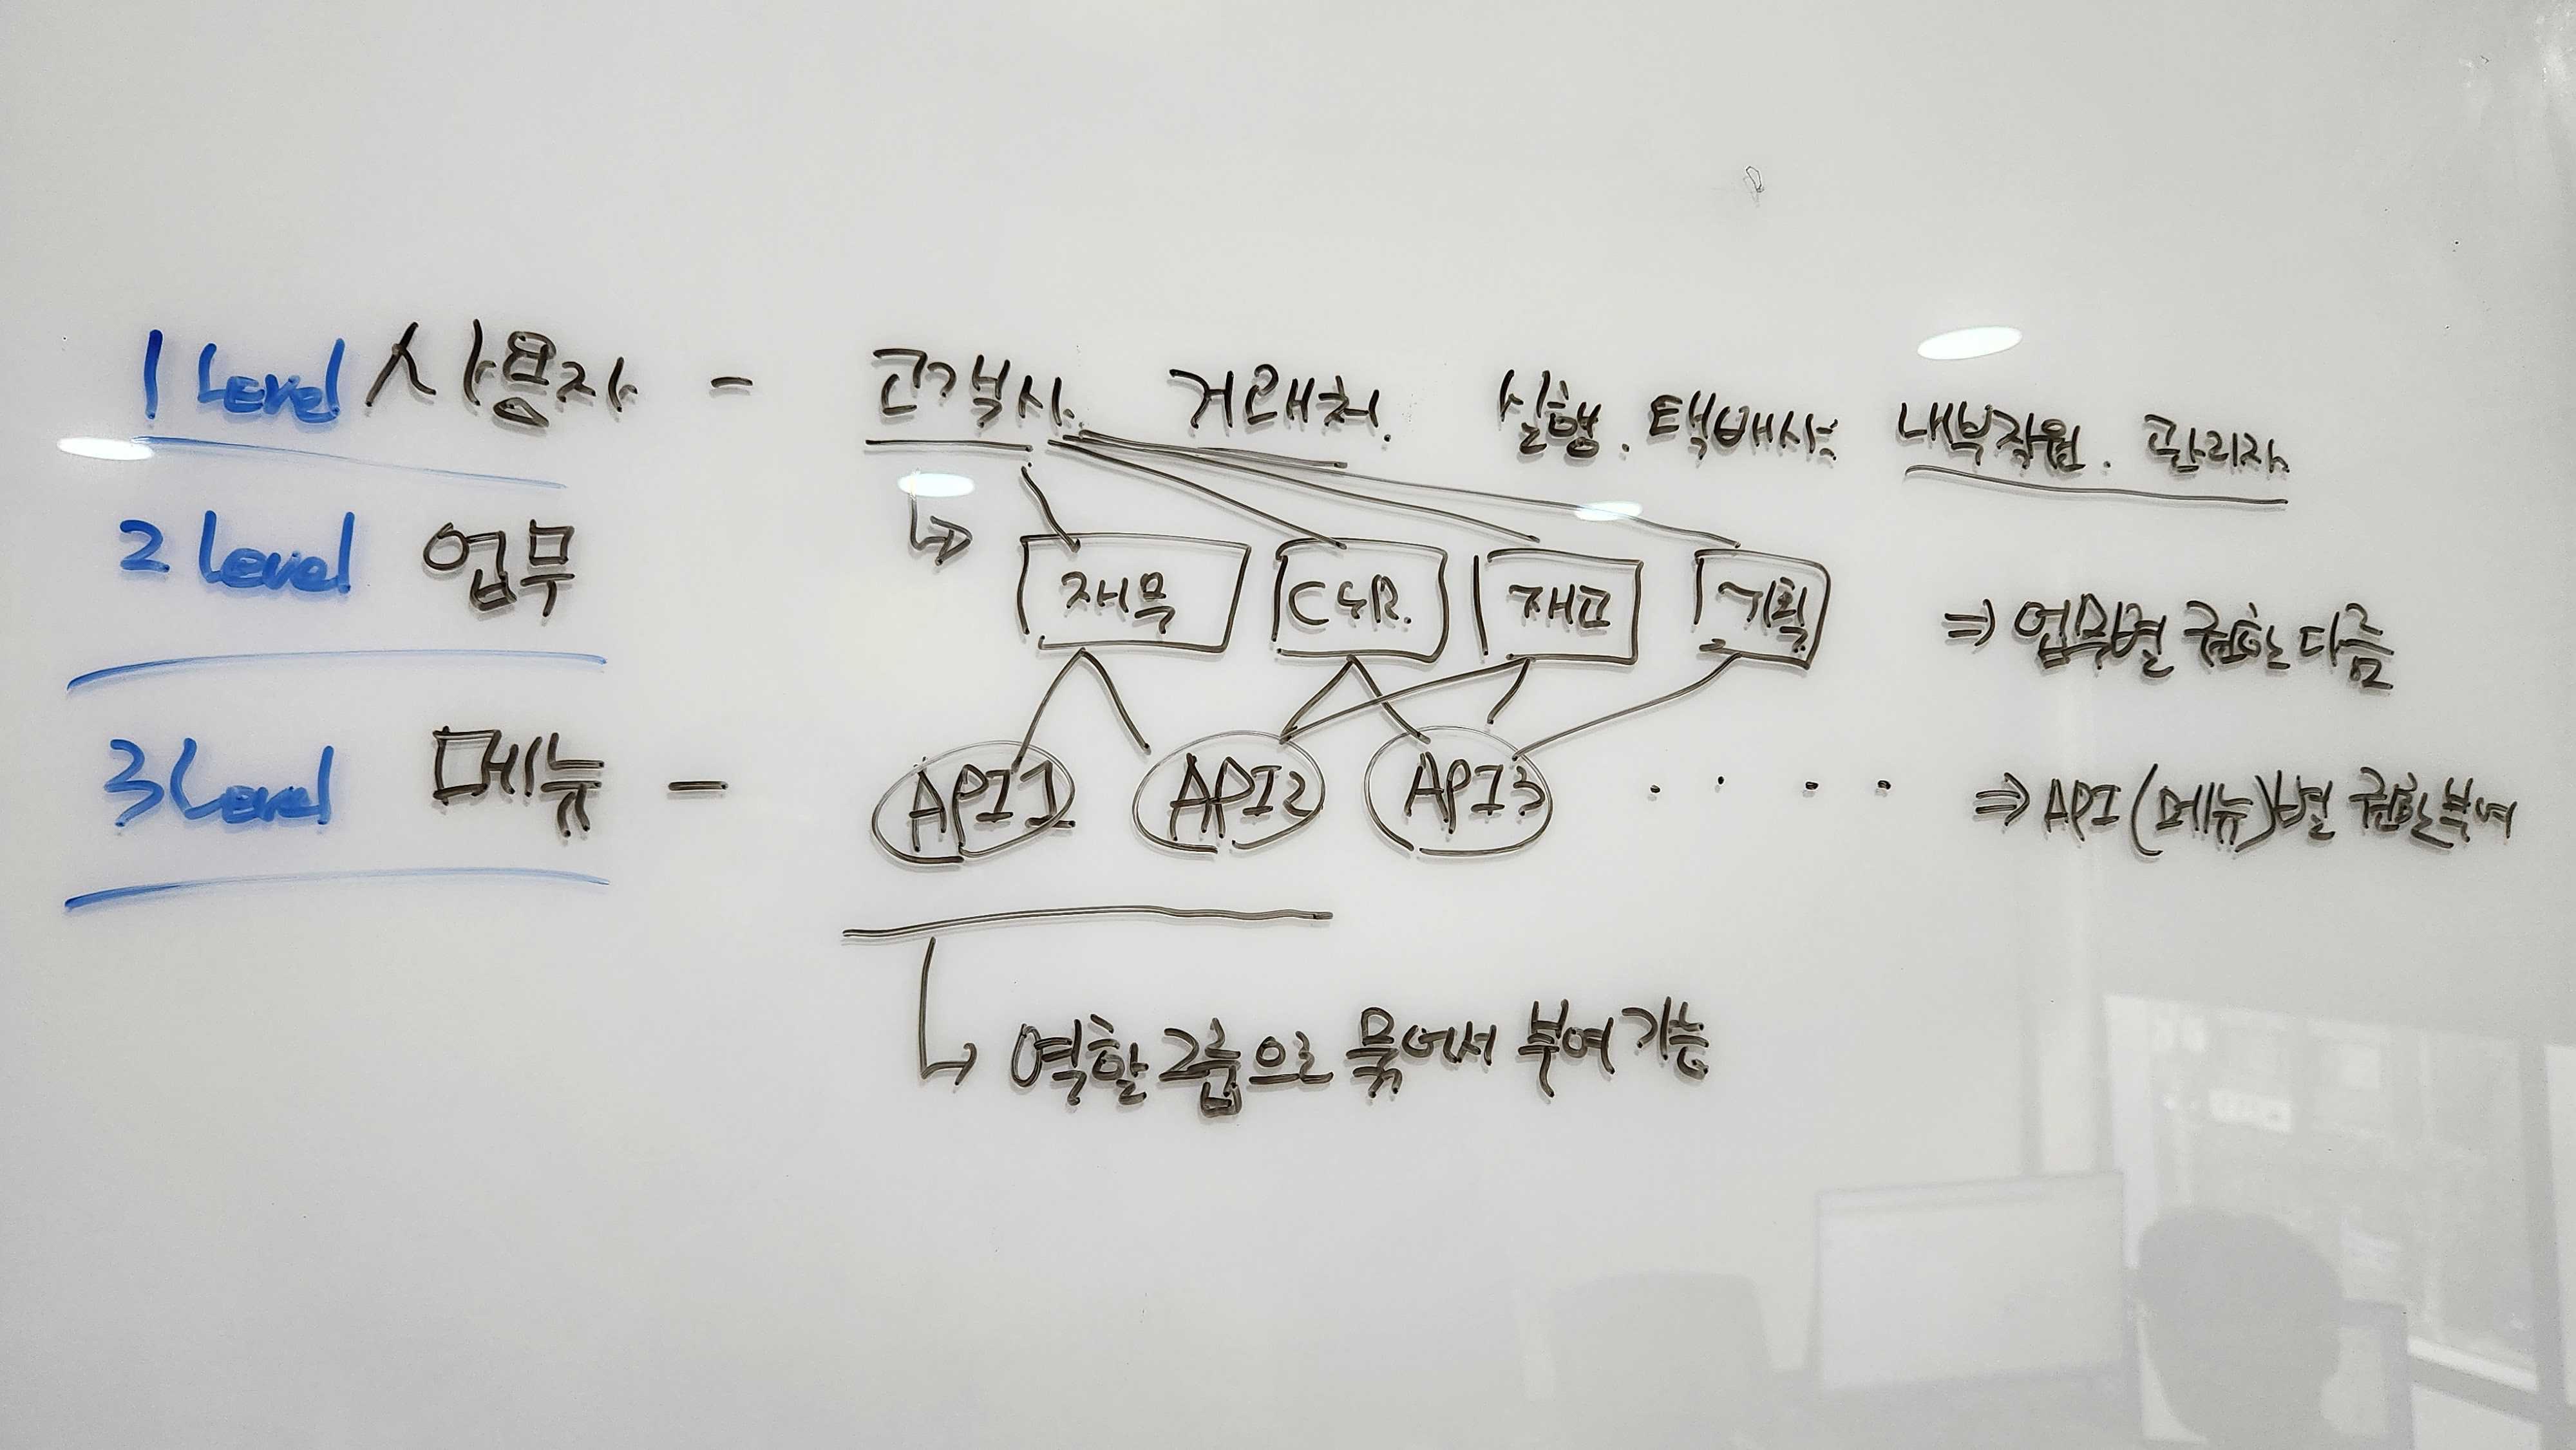 1 Level 사용자 - 고객사. 거래처. 실행. 택배사 내부직원. 관리자
2 Level 업무
재무 C&R. 재고 기획 ⇒ 업무별 권한 다름
3 Level 메뉴 - API1 API2 API3 . . . . ⇒ API (메뉴)별 권한부여
역할그룹으로 묶어서 부여 가능